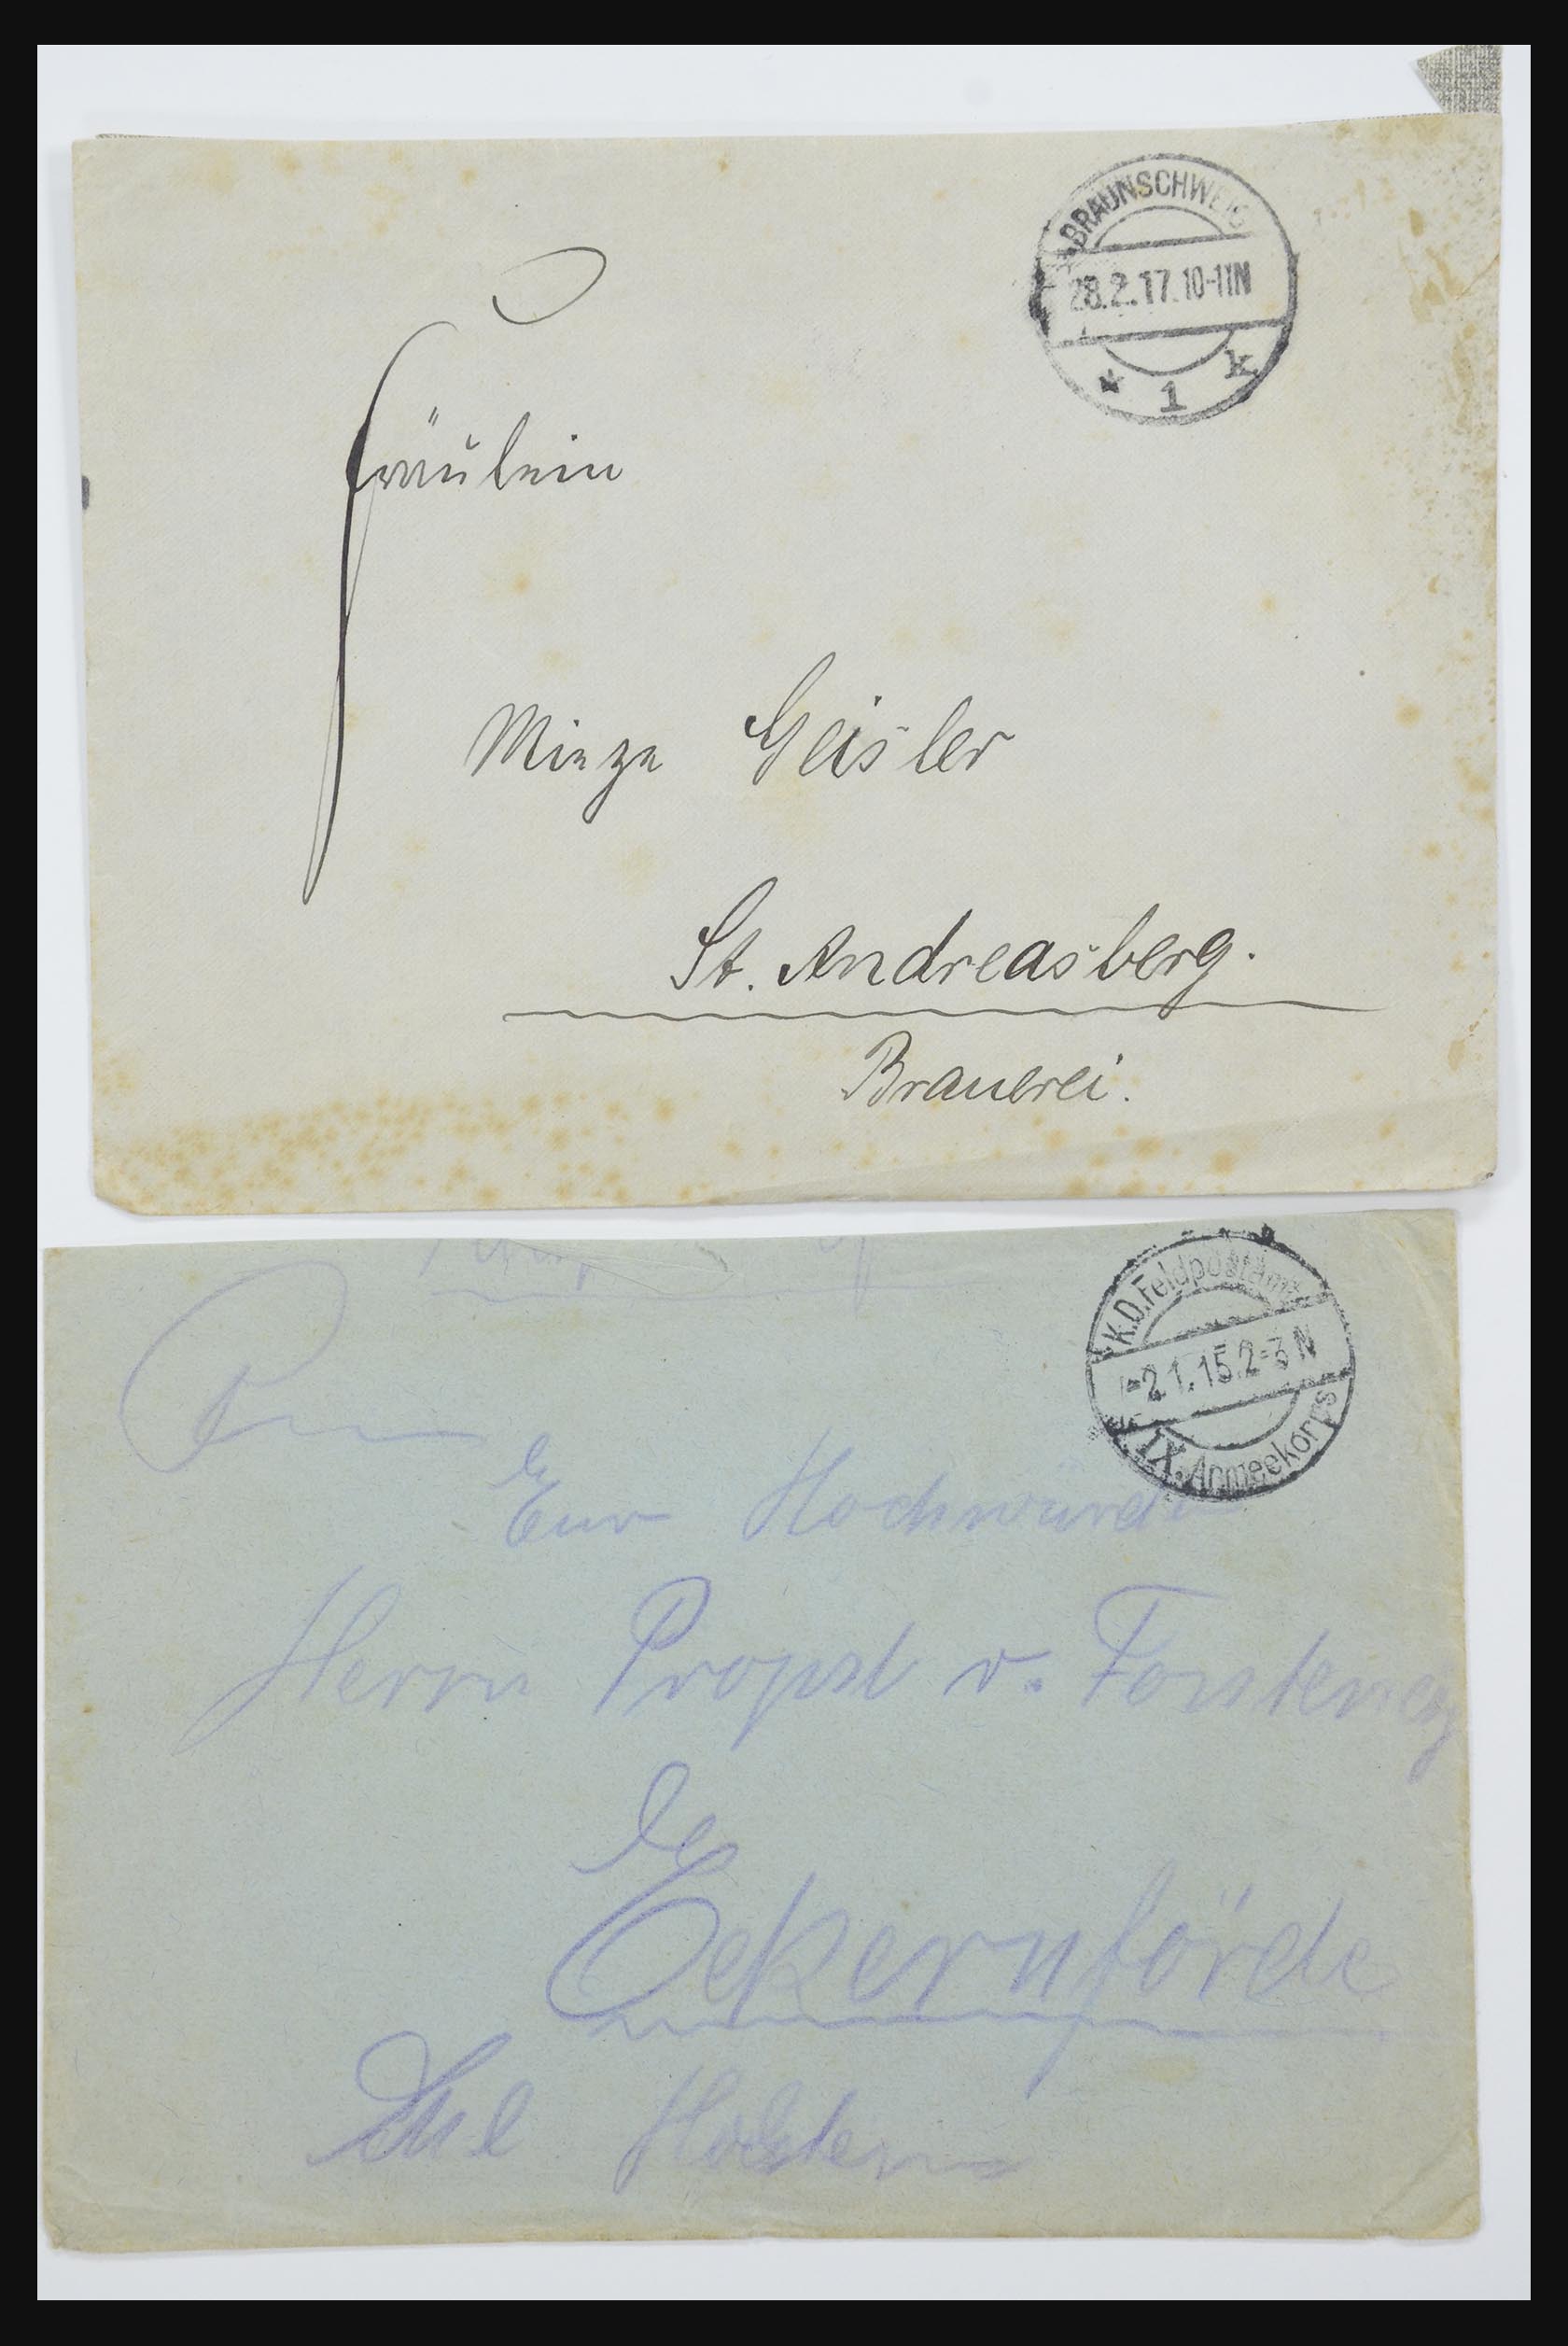 BRAUNSCHWEIG
28.2.17.10-11N
* 1 k
Fräulein
Mieze Geisler
St. Andreasberg.
Brauerei.
K.D.Feldpostamt
-2.1.15.2-3N
IX. Armeekorps
Eur Hochwürden
Herrn Propst v.
Eckernförde
Holstein